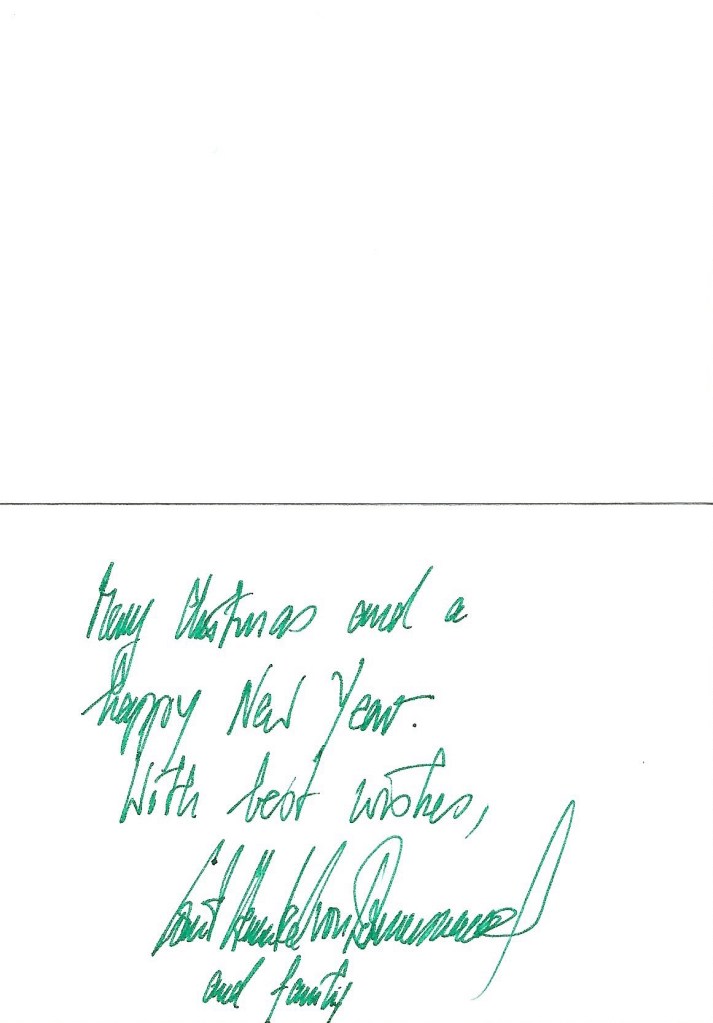 Merry Christmas and a
happy New Year.
With best wishes,
von
and family